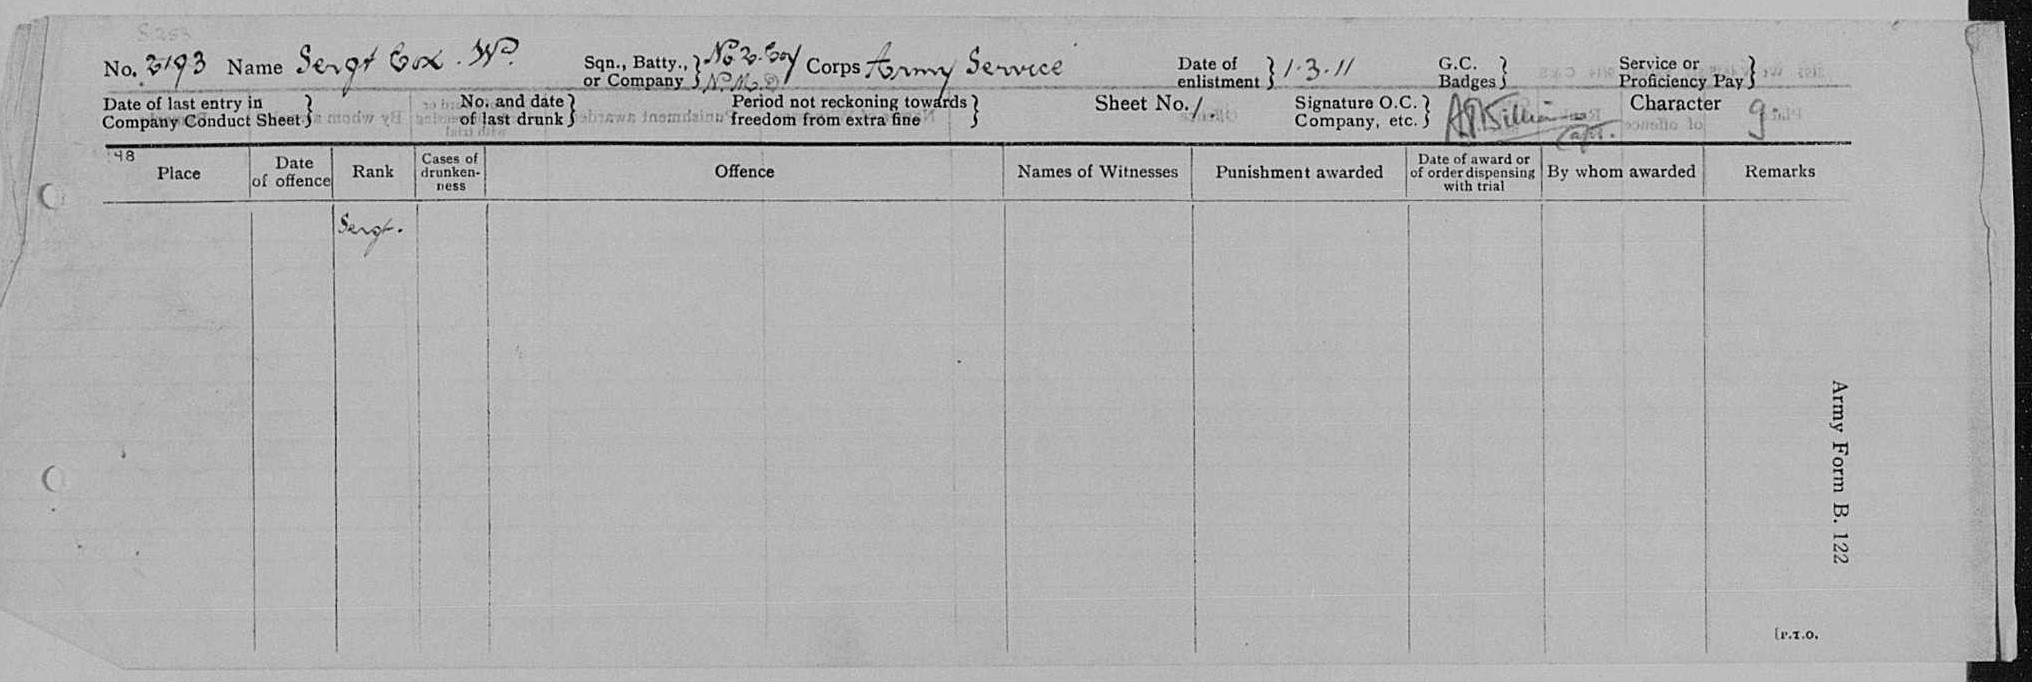 No. 2193 Name Sergt Cox. W. Sqn., Batty., or Company } No 2. Coy N.M.D Corps Army Service Date of enlistment } 1.3.11 G.C. Badges } Service or Proficiency Pay }
Date of last entry in Company Conduct Sheet } No. and date of last drunk } Period not reckoning towards freedom from extra fine } Sheet No. 1. Signature O.C. Company, etc. } Capt. Character g.
48
Place Date of offence Rank Cases of drunken-ness Offence Names of Witnesses Punishment awarded Date of award or of order dispensing with trial By whom awarded Remarks
Sergt.
Army Form B. 122
[P.T.O.